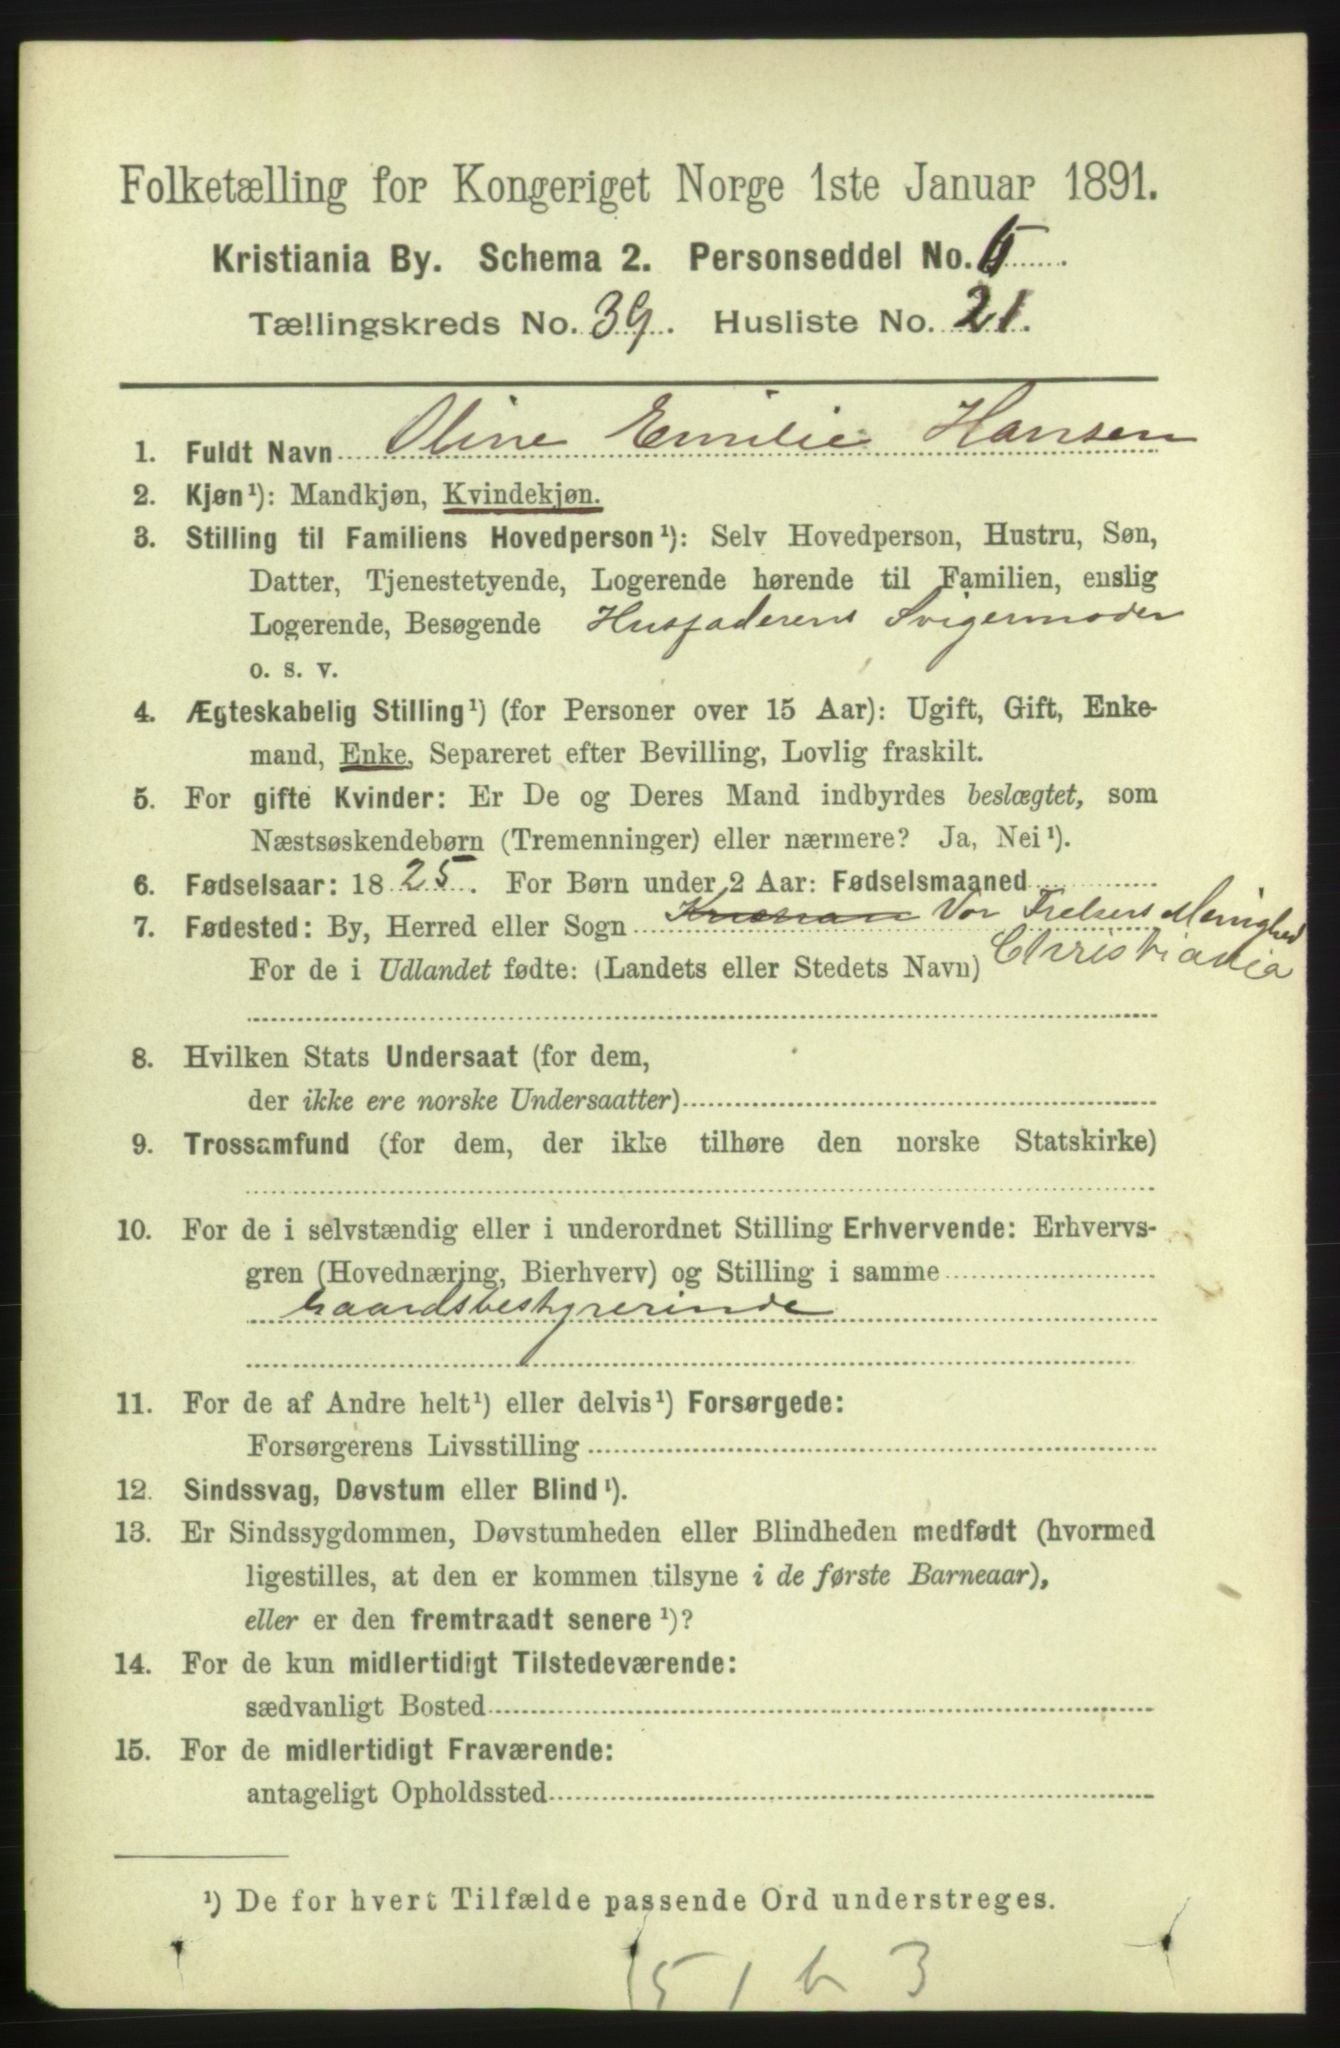 Folketælling for Kongeriget Norge 1ste Januar 1891.
Kristiania By. Schema 2. Personseddel No. 5
Tællingskreds No. 39. Husliste No. 21.
1. Fuldt Navn Oline Emilie Hansen
2. Kjøn¹): Mandkjøn, Kvindekjøn.
3. Stilling til Familiens Hovedperson¹): Selv Hovedperson, Hustru, Søn,
Datter, Tjenestetyende, Logerende hørende til Familien, enslig
Logerende, Besøgende Husfaderens Svigermoder
o. s. v.
4. Ægteskabelig Stilling¹) (for Personer over 15 Aar): Ugift, Gift, Enke-
mand, Enke, Separeret efter Bevilling, Lovlig fraskilt.
5. For gifte Kvinder: Er De og Deres Mand indbyrdes beslægtet, som
Næstsøskendebørn (Tremenninger) eller nærmere? Ja, Nei¹).
6. Fødselsaar: 1825. For Børn under 2 Aar: Fødselsmaaned
7. Fødested: By, Herred eller Sogn Vor Frelsers Menighed
For de i Udlandet fødte: (Landets eller Stedets Navn) Christiania
8. Hvilken Stats Undersaat (for dem,
der ikke ere norske Undersaatter)
9. Trossamfund (for dem, der ikke tilhøre den norske Statskirke)
10. For de i selvstændig eller i underordnet Stilling Erhvervende: Erhvervs-
gren (Hovednæring, Bierhverv) og Stilling i samme
Gaardsbestyrerinde
11. For de af Andre helt¹) eller delvis¹) Forsørgede:
Forsørgerens Livsstilling
12. Sindssvag, Døvstum eller Blind¹).
13. Er Sindssygdommen, Døvstumheden eller Blindheden medfødt (hvormed
ligestilles, at den er kommen tilsyne i de første Barneaar),
eller er den fremtraadt senere¹)?
14. For de kun midlertidigt Tilstedeværende:
sædvanligt Bosted
15. For de midlertidigt Fraværende:
antageligt Opholdssted
¹) De for hvert Tilfælde passende Ord understreges.
51 b 3